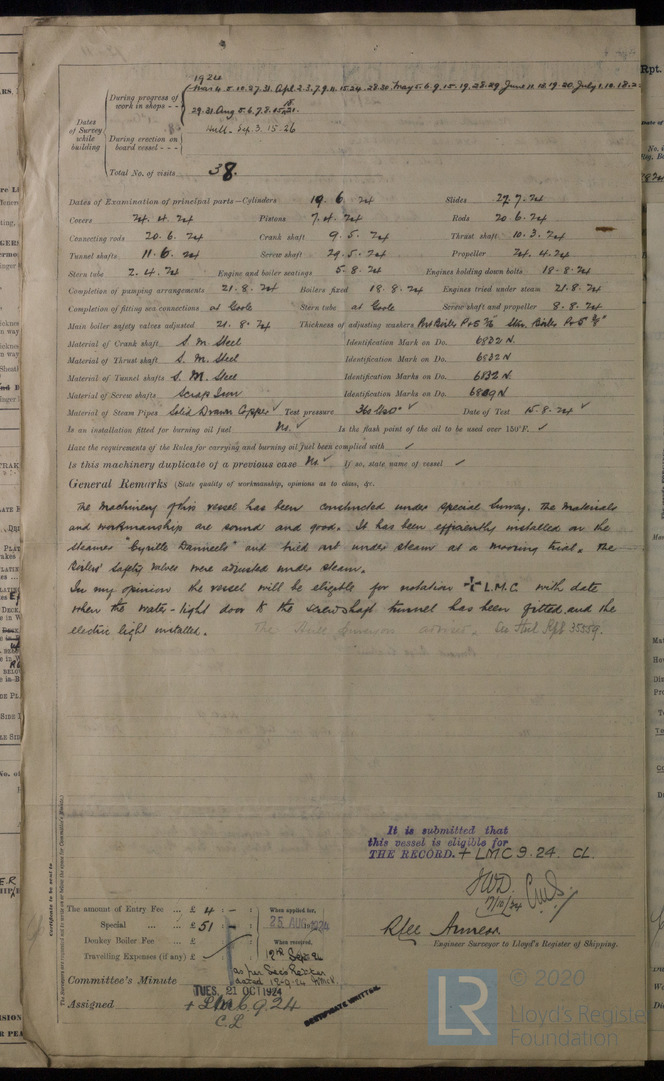 1924
Mar 4. 5. 10. 27. 31. Apl 2. 3. 7. 9. 11. 15. 24. 28. 30. May 5. 6. 9. 15. 19. 28. 29. June 11. 19. 20. July 1. 18.
During progress of work in shops - -
29. 31. Aug 5. 6. 7. 8. 15. 21.
Dates of Survey while building
Hull. Sep. 3. 15. 26
During erection on board vessel - - -
Total No. of visits 38.
Dates of Examination of principal parts—Cylinders 19. 6. 24 Slides 27. 7. 24
Covers 24. 4. 24 Pistons 7. 4. 24 Rods 20. 6. 24
Connecting rods 20. 6. 24 Crank shaft 9. 5. 24 Thrust shaft 10. 3. 24
Tunnel shafts 11. 6. 24 Screw shaft 29. 5. 24 Propeller 24. 4. 24
Stern tube 2. 4. 24 Engine and boiler seatings 5. 8. 24 Engines holding down bolts 18. 8. 24
Completion of pumping arrangements 21. 8. 24 Boilers fixed 18. 8. 24 Engines tried under steam 21. 8. 24
Completion of fitting sea connections at Goole Stern tube at Goole Screw shaft and propeller 8. 8. 24
Main boiler safety valves adjusted 21. 8. 24 Thickness of adjusting washers Port Boiler P&S Star. Boiler P&S
Material of Crank shaft S. M. Steel Identification Mark on Do. 6832 N.
Material of Thrust shaft S. M. Steel Identification Mark on Do. 6832 N
Material of Tunnel shafts S. M. Steel Identification Marks on Do. 6832 N.
Material of Screw shafts Scrap Iron Identification Marks on Do. 6809 N
Material of Steam Pipes Solid Drawn Copper ✓ Test pressure 360 lbs □" ✓ Date of Test 15. 8. 24 ✓
Is an installation fitted for burning oil fuel No. ✓ Is the flash point of the oil to be used over 150°F. ✓
Have the requirements of the Rules for carrying and burning oil fuel been complied with ✓
Is this machinery duplicate of a previous case No. ✓ If so, state name of vessel ✓
General Remarks (State quality of workmanship, opinions as to class, &c.
The Machinery of this vessel has been constructed under special survey. The materials
and workmanship are sound and good. It has been efficiently installed on the
steamer "Cyrille Danneels" and tried out under steam at a mooring trial. The
Boilers' safety valves were adjusted under steam.
In my opinion the vessel will be eligible for notation + L.M.C. with date
when the water-light door to the screwshaft tunnel has been fitted and the
electric light installed. The Hull Surveyors advised. See Hull Rpt 35559.
It is submitted that
this vessel is eligible for
THE RECORD. + LMC 9. 24. CL.
7/10/24
Certificate to be sent to
The amount of Entry Fee ... £ 4 : - : When applied for,
Special ... ... £ 51 : - : 25 AUG 1924
Donkey Boiler Fee ... £ : : When received,
Travelling Expenses (if any) £ 12th Sept 24
as per Secs letter
dated 12-9-24
Engineer Surveyor to Lloyd's Register of Shipping.
Committee's Minute TUES. 21 OCT 1924
Assigned + LMC 9. 24
C. L.
CERTIFICATE WRITTEN.
© 2020
LR
Lloyd's Register
Foundation